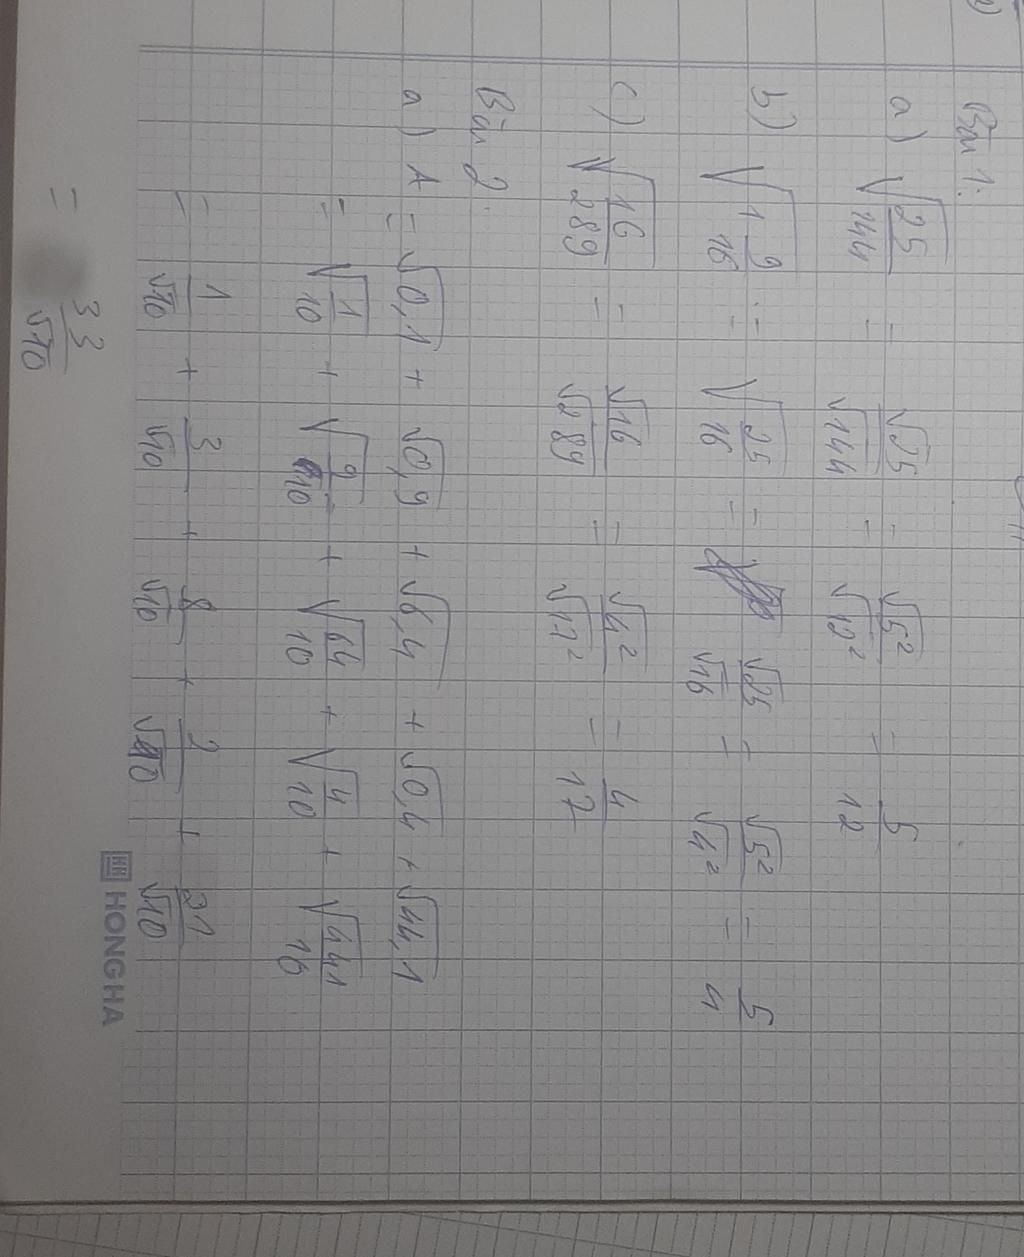 Bài 1:
a) √(25/144) = √25/√144 = √5²/√12² = 5/12
b) √(1 9/16) = √(25/16) = √25/√16 = √5²/√4² = 5/4
c) √(16/289) = √16/√289 = √4²/√17² = 4/17
Bài 2:
a) A = √0,1 + √0,9 + √6,4 + √0,4 + √44,1
= √(1/10) + √(9/10) + √(64/10) + √(4/10) + √(441/10)
= 1/√10 + 3/√10 + 8/√10 + 2/√10 + 21/√10
= 33/√10
HONG HA